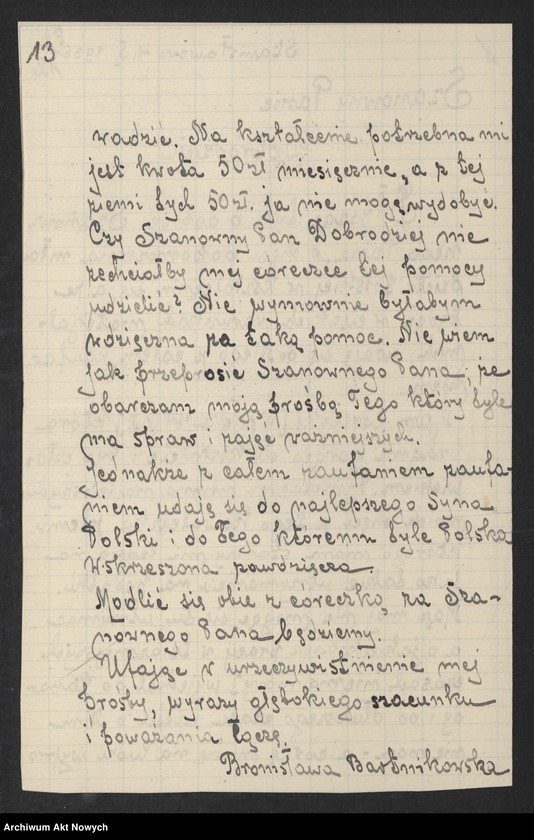 13
wadzić. Na kształcenie potrzebna mi
jest kwota 50 zł miesięcznie, a z tej
ziemi tych 50 zł. ja nie mogę wydobyć.
Czy Szanowny Pan Dobrodziej nie
zechciałby mej córeczce tej pomocy
udzielić? Nie wymownie byłabym
wdzięczna za taką pomoc. Nie wiem
jak przeprosić Szanownego Pana, że
obarczam moją prośbą Tego który tyle
ma spraw i zajęć ważniejszych.
Jednakże z całem zaufaniem zaufa-
niem udaję się do najlepszego Syna
Polski i do Tego któremu tyle Polska
Wskrzeszona zawdzięcza.
Modlić się obie z córeczką za Sza-
nownego Pana będziemy.
Ufając w urzeczywistnienie mej
prośby, wyrazy głębokiego szacunku
i poważania łączę.
Bronisława Bartnikowska
Archiwum Akt Nowych